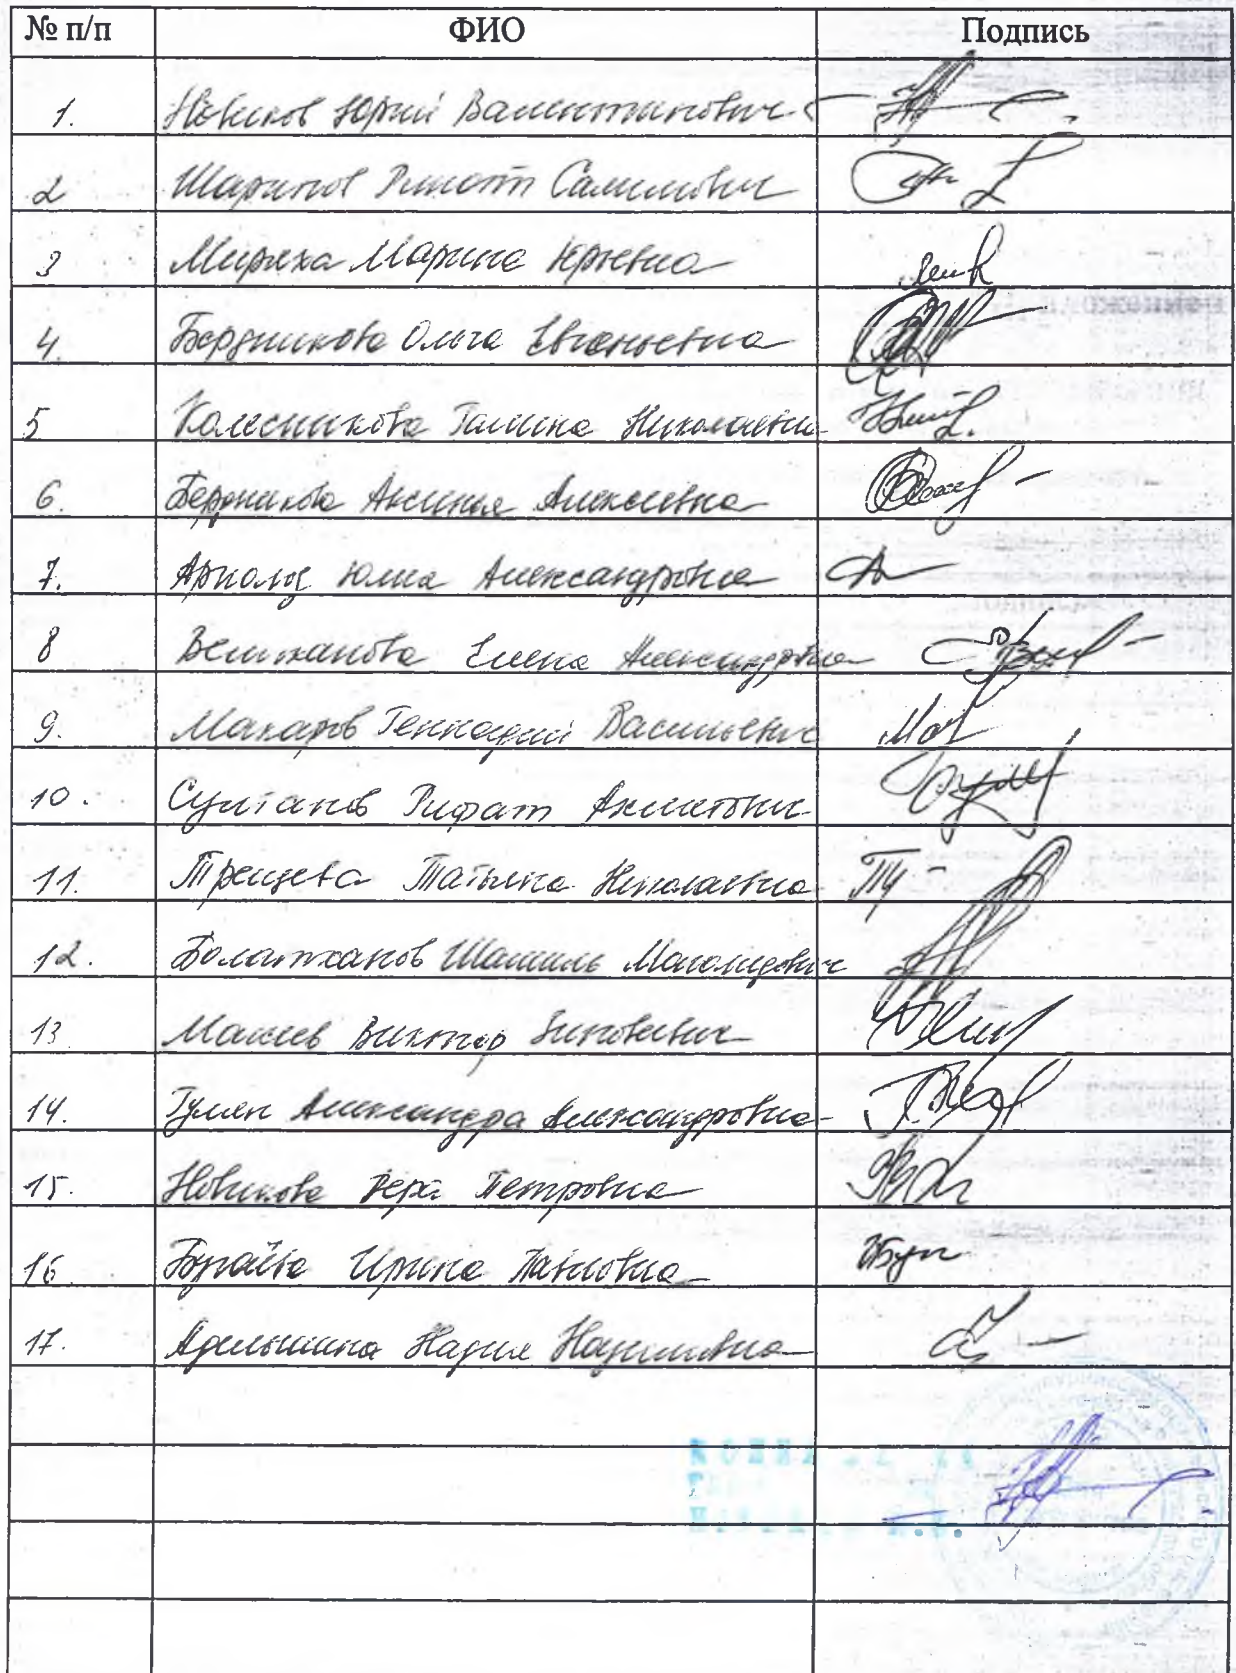 № п/п ФИО Подпись
1. Новиков Юрий Валентинович
2 Шарипов Ринат Салимович
3 Марина Юрьевна
4. Бердникова Ольга Евгеньевна
5 Колесникова Галина Николаевна
6. Бердникова Аксинья Алексеевна
7. Арнольд Юлия Александровна
8 Велижанова Елена Александровна
9. Макаров Геннадий Васильевич
10. Султанов Рифат Ахметович
11. Трещева Татьяна Николаевна
12. Болатханов Шамиль Магомедович
13 Виктор Зиновьевич
14. Гулян Александра Александровна
15. Новикова Вера Петровна
16 Ирина Павловна
17. Адельшина Надия